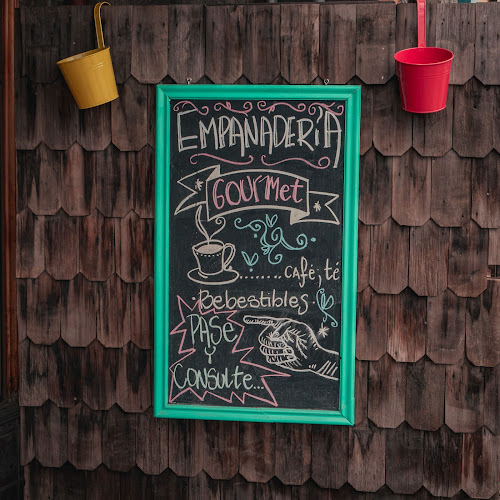 EMPANADERÍA
GOURMET
........ CAFé, té
· Bebestibles ·
PASE
Y
CONSULTE...